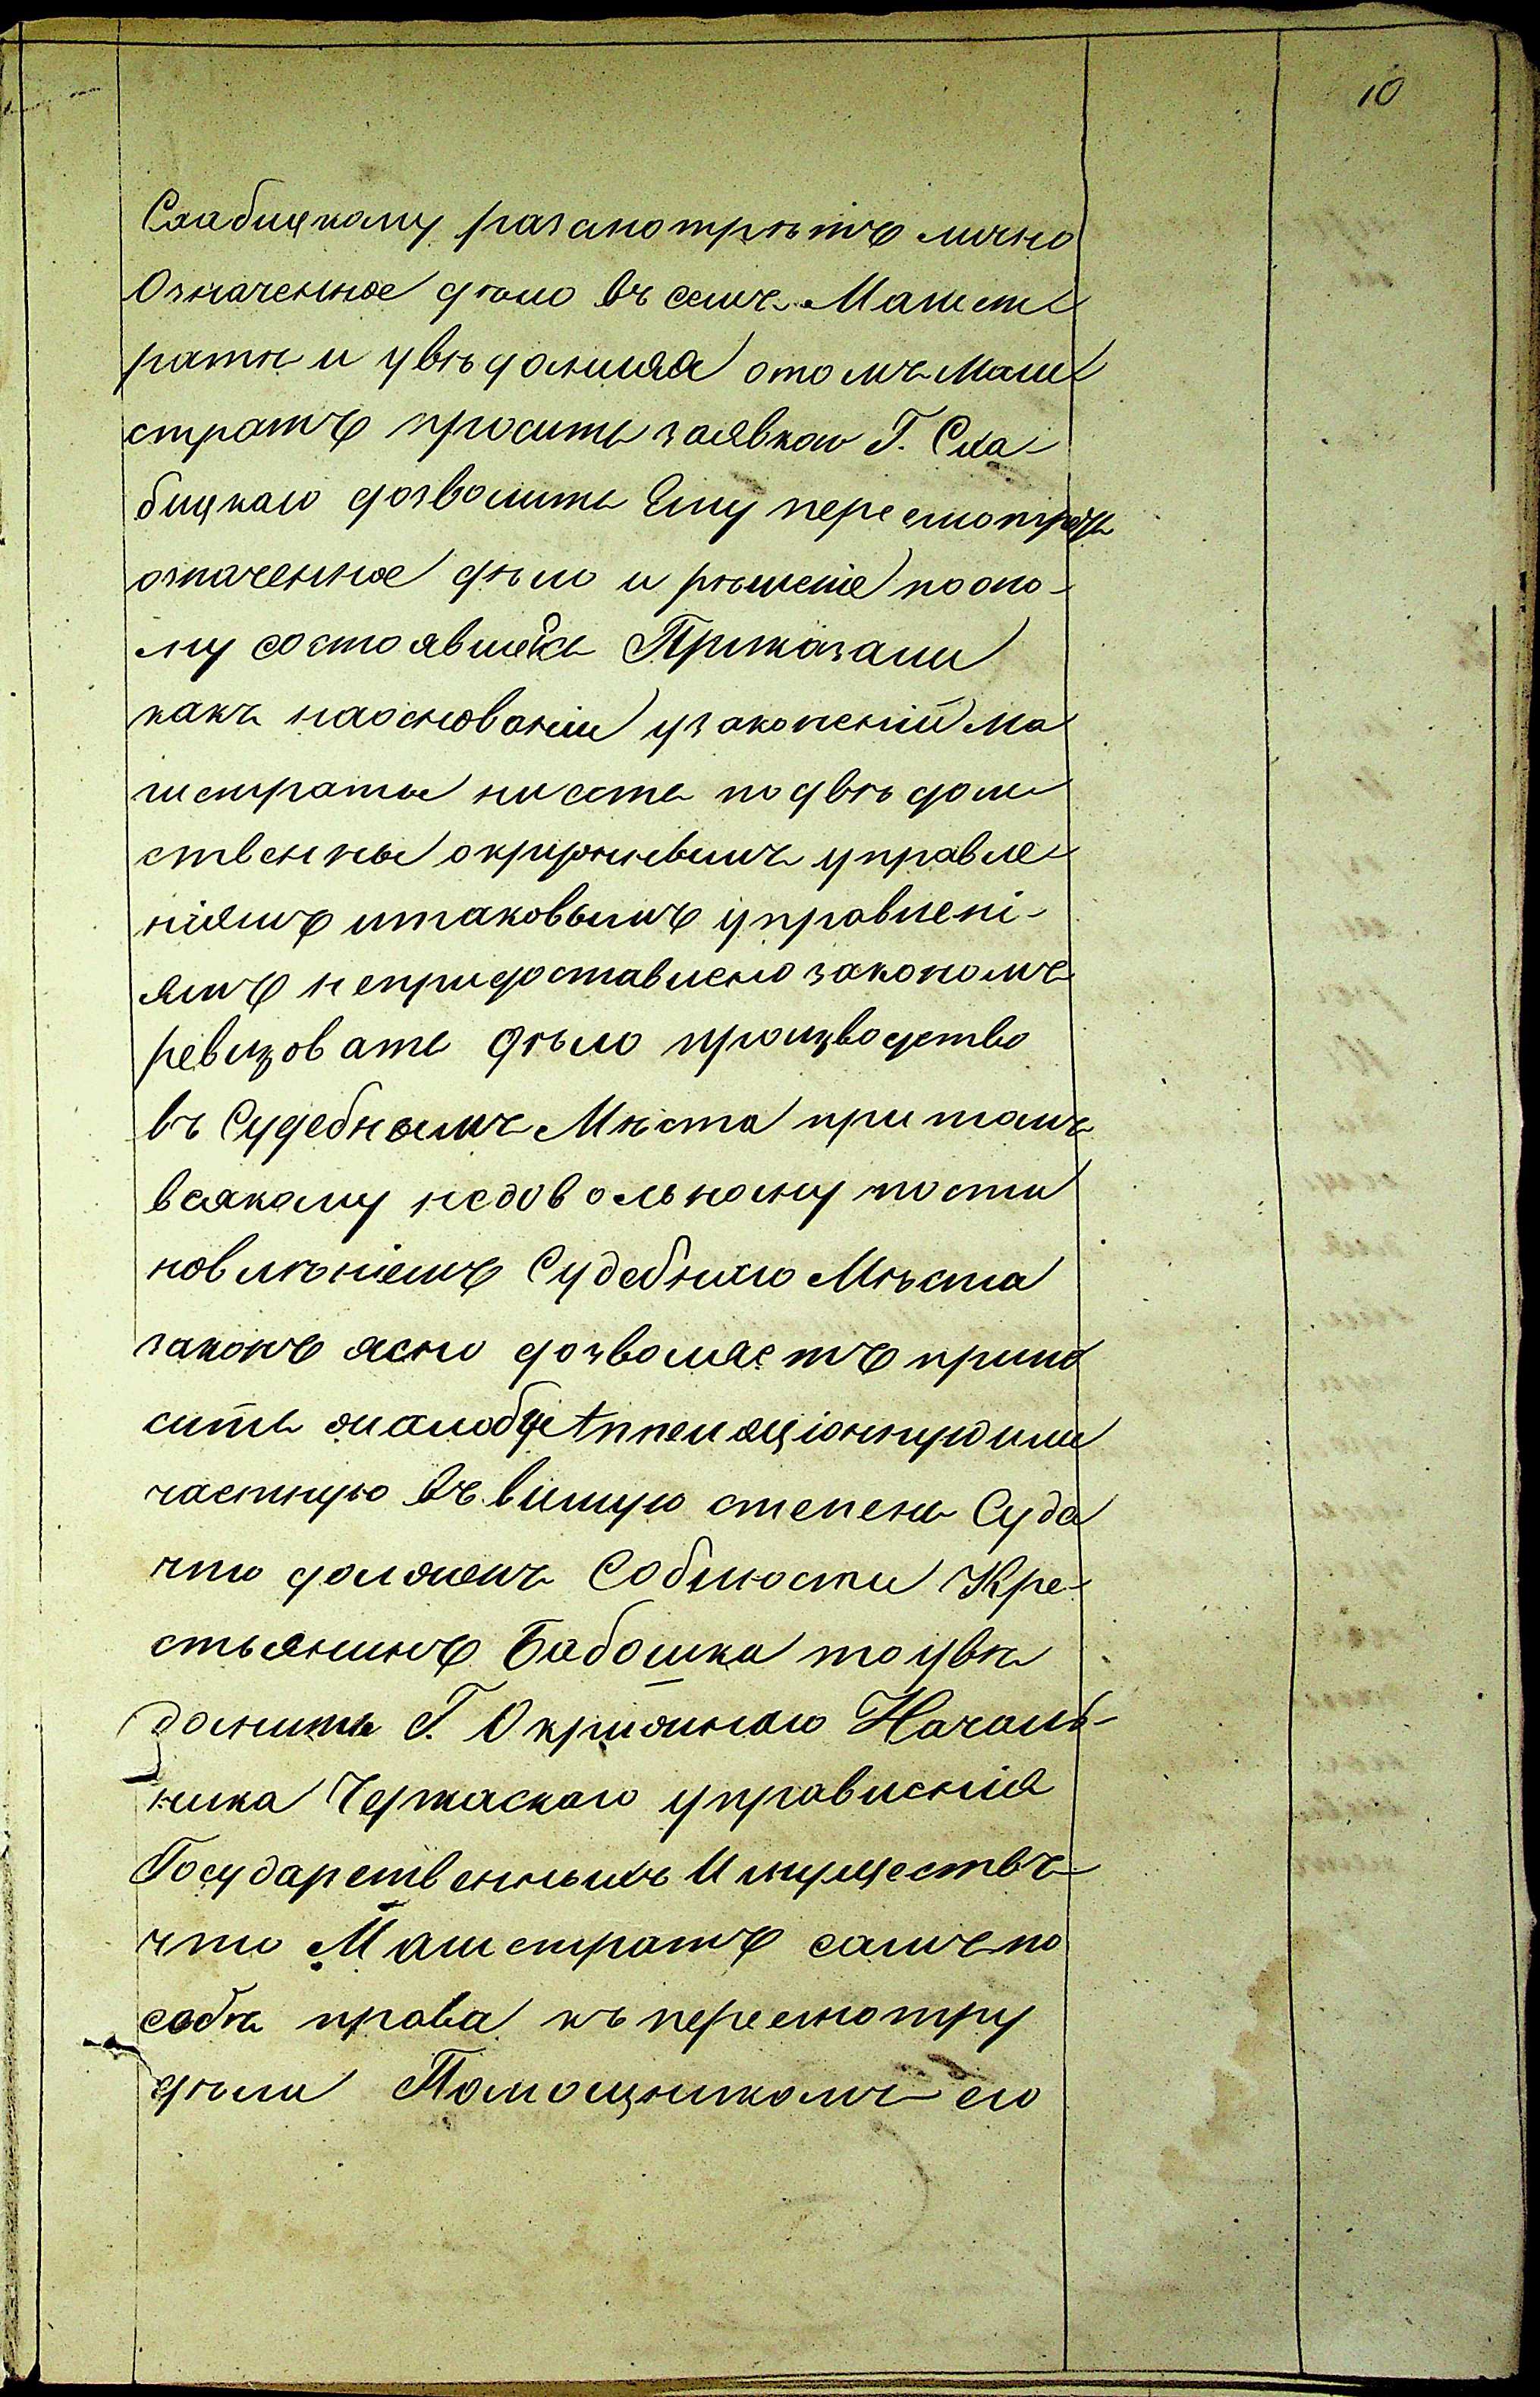 10
Слабицкому разсмотрѣть лично
Означенное дѣло въ семъ Магист
ратѣ и увѣдомляя отомъ Маги
стратъ просить заявкою Г. Сла-
бицкаго дозволить Ему пересмотреть
означенное дѣло и рѣшеніе пооно-
му состоявшейся Приказали
какъ наоснованіи узаконеній Ма
гистраты нисуть подвѣдом
ственны окружнымъ управле
ніямъ итаковымъ управлені-
ямъ непридоставлено закономъ
ревизовать дѣло производство
въ Судебнымъ Мѣста притомъ
всякому недовольному поста
новлѣніемъ Судебнаго Мѣста
законъ ясно дозволяетъ прино
сить жалобу Аппеляціонную или
частную въ вышую степень Суда
что долженъ Соблюсти Кре-
стьянинъ Бабошка то увѣ
домить Г. Окружнаго Началь-
ника Черкаскаго управленія
Государственныхъ Имуществъ
что Магистратъ самъ по
себѣ права къ пересмотру
дѣла Помощникомъ его